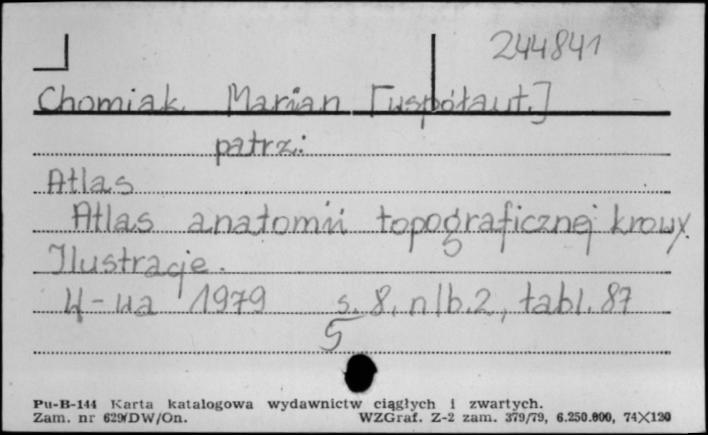 244841
Chomiak Marian [współaut.]
patrz:
Atlas
Atlas anatomii topograficznej krowy.
Ilustracje.
W-wa 1979 s. 8, nlb. 2, tabl. 87
5
Pu-B-144 Karta katalogowa wydawnictw ciągłych i zwartych.
Zam. nr 629/DW/On. WZGraf. Z-2 zam. 379/79, 6.250.000, 74X120